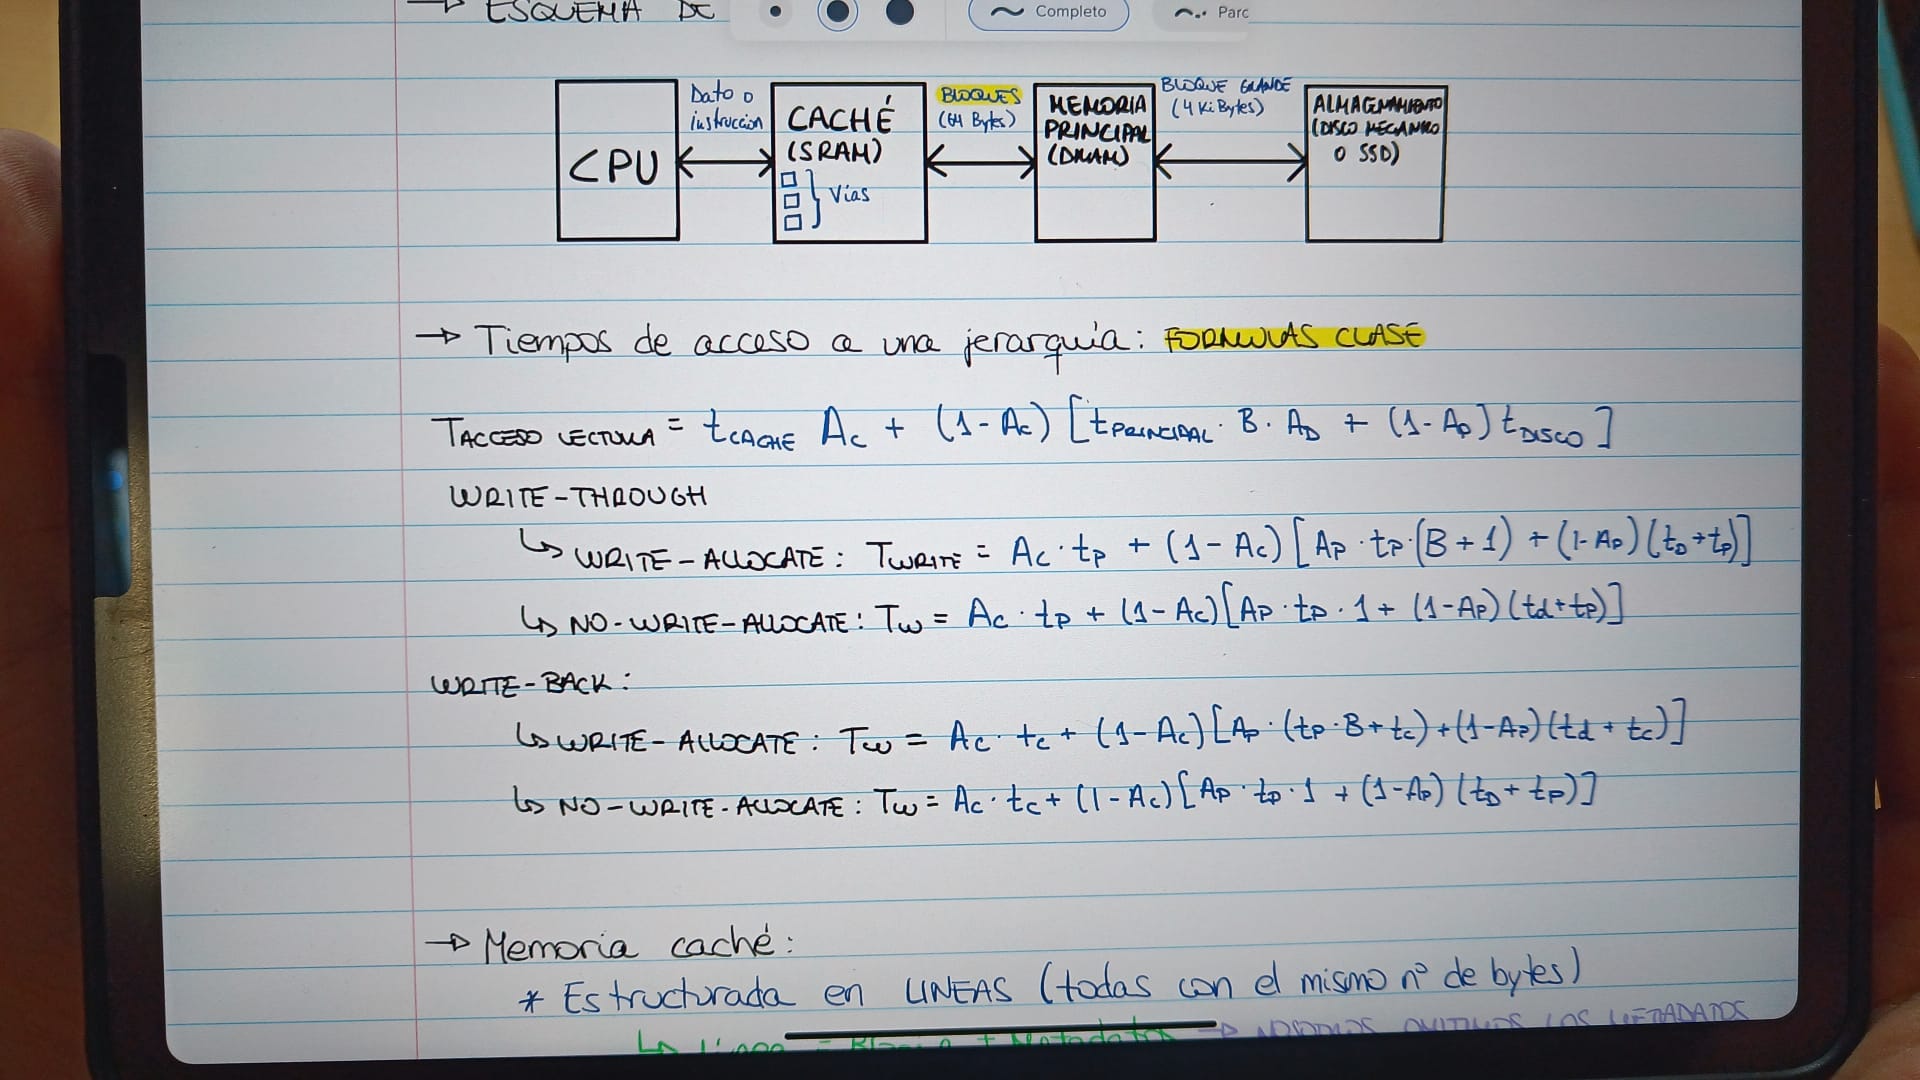 → ESQUEMA DE
Completo
Parc
CPU
Dato o
instrucción
CACHÉ
(SRAM)
Vías
BLOQUES
(64 Bytes)
MEMORIA
PRINCIPAL
(DRAM)
BLOQUE GRANDE
(4 KiBytes)
ALMACENAMIENTO
(DISCO MECANICO
O SSD)
→ Tiempos de acceso a una jerarquía: FORMULAS CLASE
TACCESO LECTURA = tCACHE Ac + (1-Ac) [tPRINCIPAL · B · Ap + (1-Ap) tDISCO]
WRITE-THROUGH
↳ WRITE-ALLOCATE: TWRITE = Ac · tp + (1-Ac) [Ap · tp · (B+1) + (1-Ap)(tD+tp)]
↳ NO-WRITE-ALLOCATE: Tw = Ac · tp + (1-Ac) [Ap · tp · 1 + (1-Ap)(td+tp)]
WRITE-BACK:
↳ WRITE-ALLOCATE: Tw = Ac · tc + (1-Ac) [Ap · (tp · B + tc) + (1-Ap)(td + tc)]
↳ NO-WRITE-ALLOCATE: Tw = Ac · tc + (1-Ac) [Ap · tp · 1 + (1-Ap) (tD + tp)]
→ Memoria caché:
* Estructurada en LINEAS (todas con el mismo nº de bytes)
↳ Línea = Bloque + Metadatos → NOSOTROS OMITIMOS LOS METADATOS